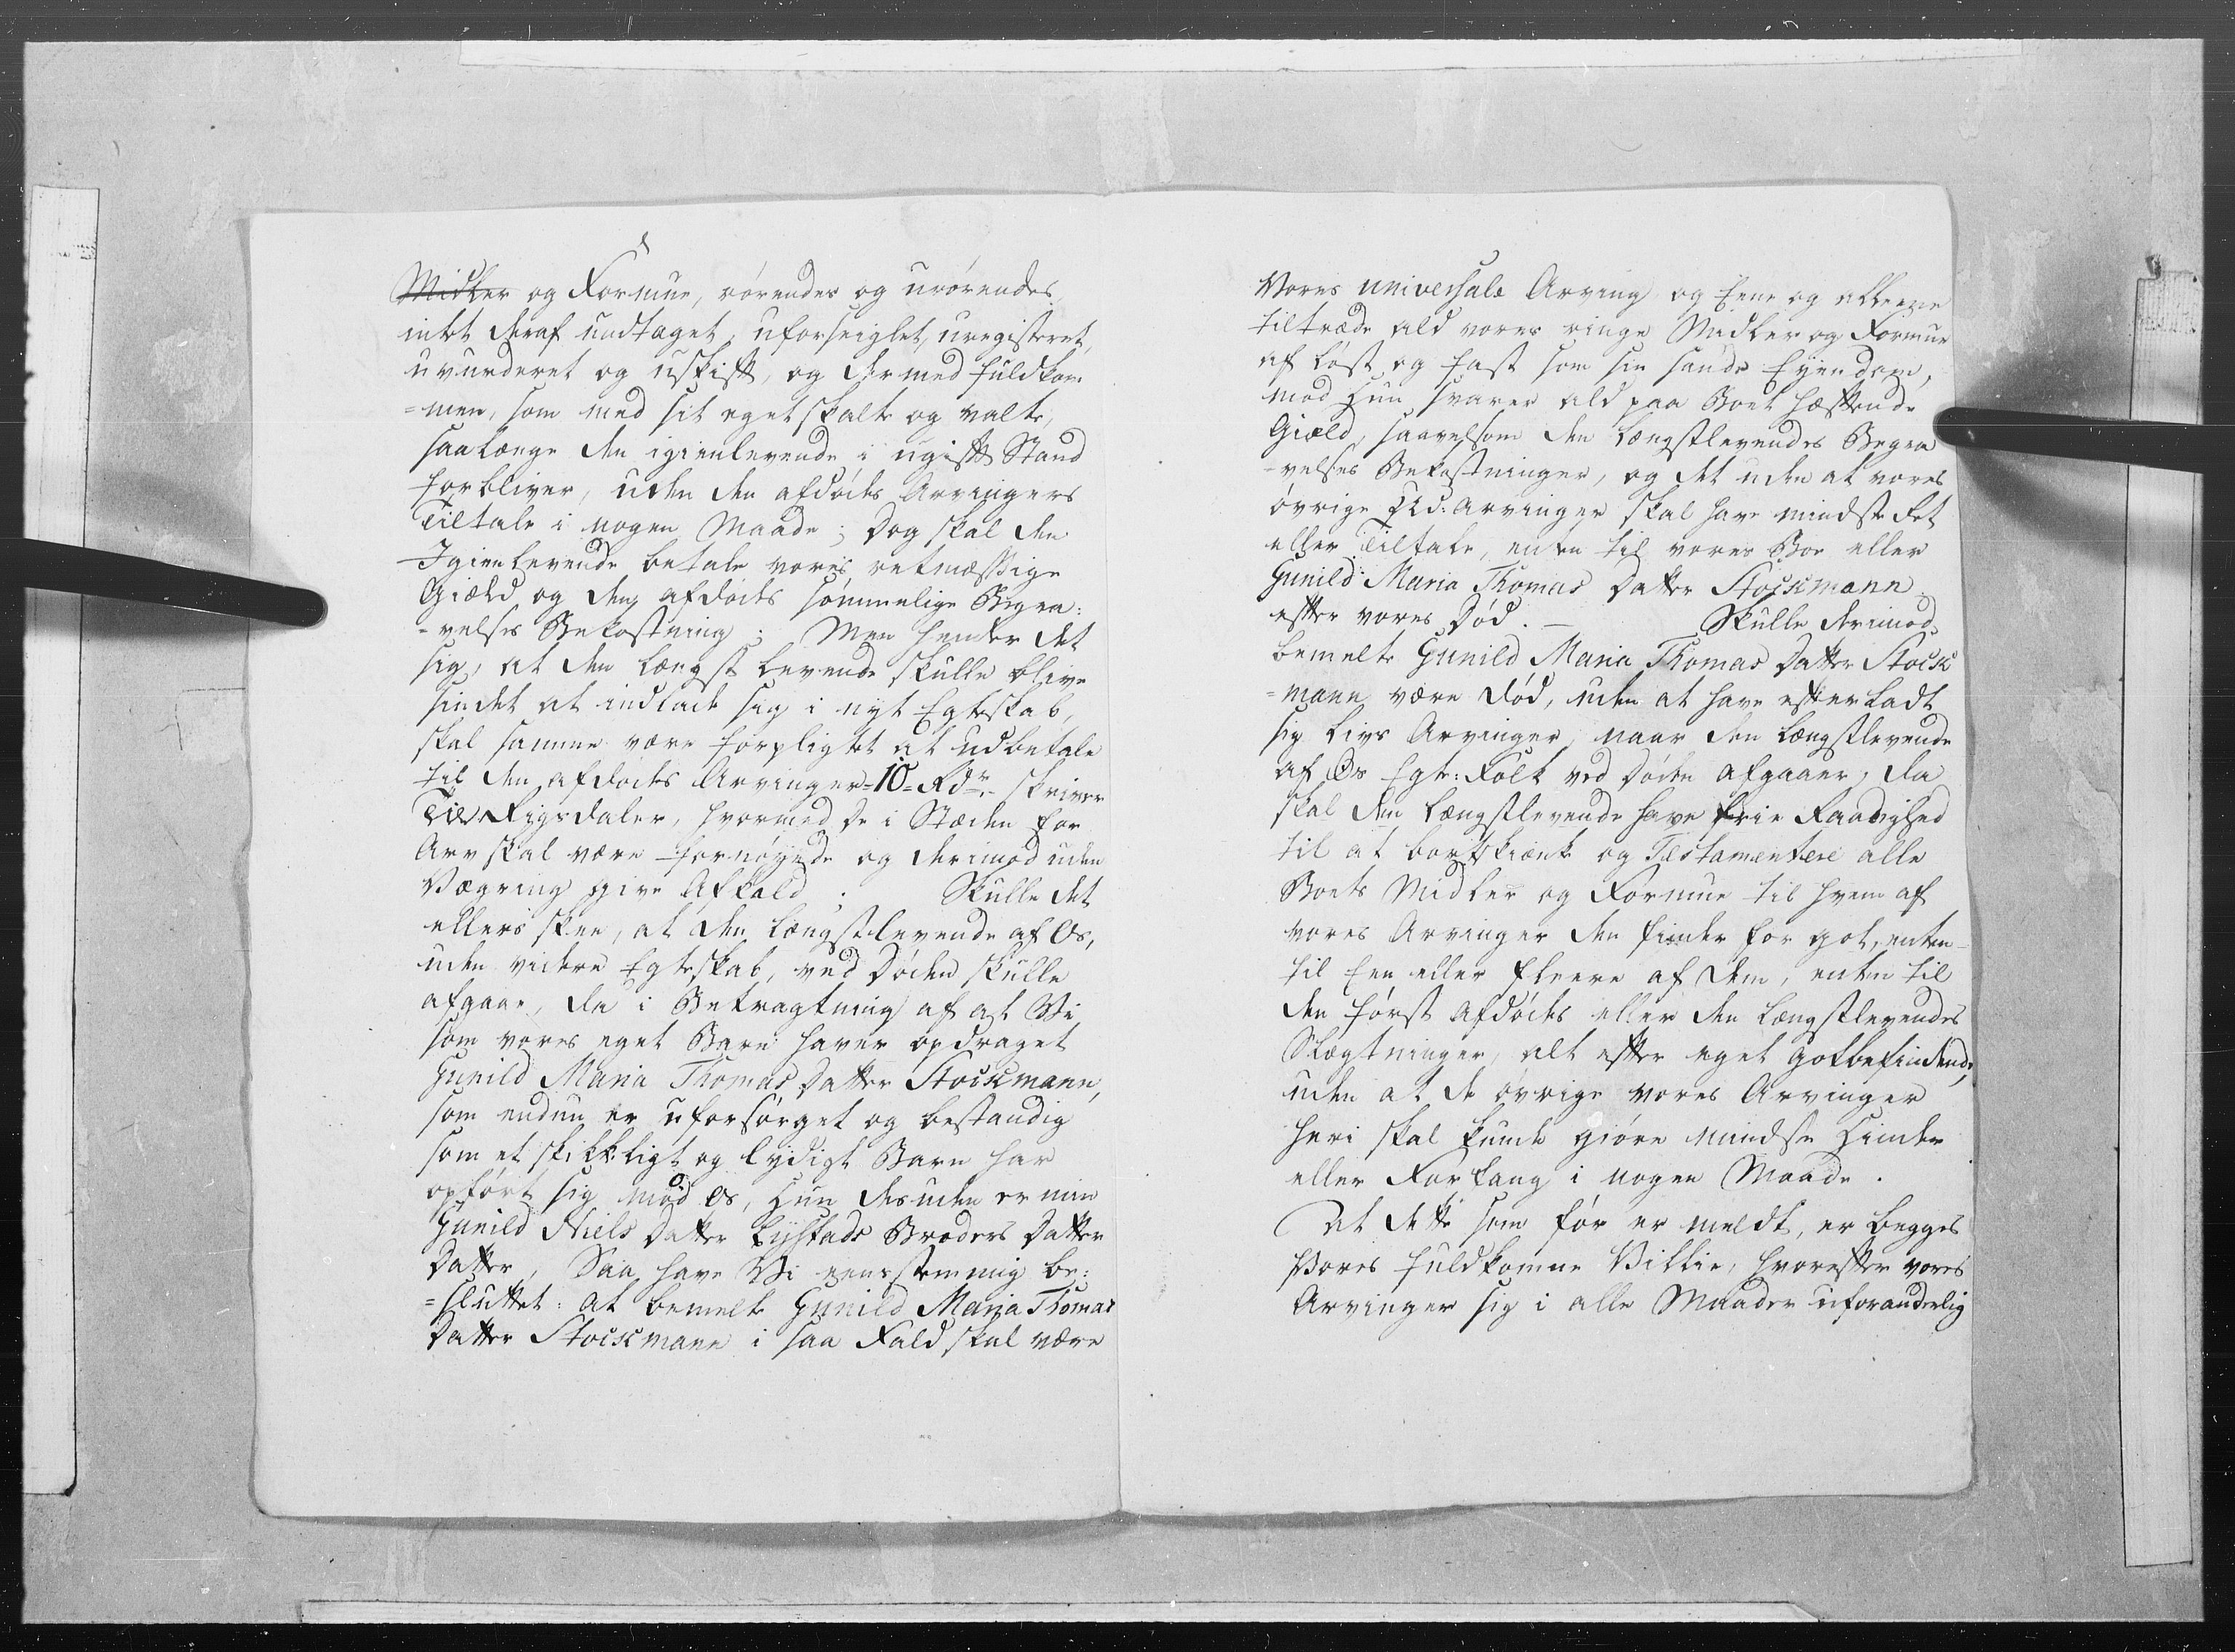 Midler og Formue, rörendes og urörendes,
intet deraf undtaget, uforseiglet, uregisteret,
uvurderet og uskift, og dermed fuldkom-
=men, som med sit eget skalte og valte,
saalænge den igienlevende i ugift Stand
forbliver, uden den afdödes Arvingers
Tiltale i nogen Maade; Dog skal den
Igienlevende betale vores retmæssige
Giæld og den afdödes sömmelige Begra:
-velses Bekostning; Men hender det
sig, at den længst levende skulle blive
sindet at indlade sig i nyt Egteskab,
skal samme være forpligtet at udbetale
til den afdödes Arvinger =10= Rdr. skriver
Tie Rigsdaler, hvormed De i Stæden for
Arv skal være fornöyede og derimod uden
Vægring give Afkald; Skulle det
ellers skee, at den længstlevende af Os,
uden videre Egteskab, ved Döden skulle
afgaae, da i Betragtning af at Vi
som vores eget Barn haver opdraget
Gunild Maria Thomas Datter Stockmann,
som endnu er uforsörget og bestandig
som et skikkeligt og lydigt Barn har
opfört sig mod Os, Hun desuden er min
Gunild Niels Datter Lystads Broders Datter
Datter, Saa have Vi eensstemmig be:
=sluttet: at bemelte Gunild Maria Thomas
Datter Stockmann i saa Fald skal være
Vores universale Arving og Eene og alleene
tiltræde ald vores ringe Midler og Formue
af löst og fast som sin sande Eyendom,
mod Hun svarer ald paa Boet hæftende
Giæld, saavelsom den længstlevendes Begra
-velses Bekostninger, og det uden at vores
övrige Ud: Arvinger skal have mindste Ret
eller Tiltale, enten til vores Boe eller
Gunild Maria Thomas Datter Stockmann
efter vores Död. — Skulle derimod
bemelte Gunild Maria Thomas Datter Stock
=mann være död, uden at have efterladt
sig Livs Arvinger, naar den længstlevende
af Os Egte: Folk ved Döden afgaaer, da
skal den længstlevende have frie Raadighed
til at bortskiænke og Testamentere alle
Boets Midler og Formue til hvem af
vores Arvinger den finder for got, enten
til Een eller fleere af dem, enten til
den först Afdödes eller den længstlevendes
Slægtninger, alt efter eget Gotbefindende,
uden at de övrige vores Arvinger
heri skal kunde giöre mindste Hinder
eller Forfang i nogen Maade.
At dette som för er meldt, er begges
Vores fuldkomne Villie, hvorefter vores
Arvinger sig i alle Maader uforanderlig